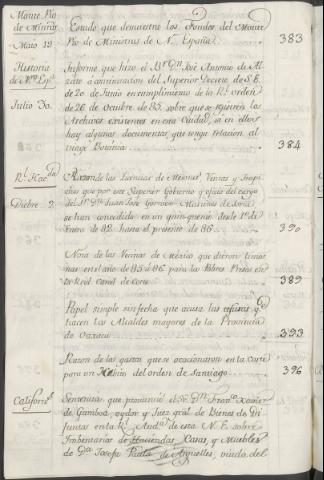 Monte Pio
de Minist.s
Mayo 19
Estado que demuestra los Fondos del Monte
Pio de Ministros de N.a España
383
Historia
de N.va Esp.a
Julio 30
Informe que hizo el Br. Dn. José Antonio de Al-
zate á continuacion del Superior Decreto de S.E.
de 20 de Junio en cumplimiento de la Rl. orden
de 26 de Octubre de 85, sobre que se
Archivos existentes en esta Ciudad, si en ellos
hay algunos documentos que tenga relacion al
384
Rl. Hac.da
Dicbre. 2
Razon de las Licencias de Mesones, Ventas y Trapi-
ches que por este Superior Gobierno y oficio del cargo
del Sr. Dn. Juan José
se han concedido en un quinquenio desde 1º de
Enero de 82 hasta el presente de 86
390
Nota de las Vecinas de México que dieron limos-
nas en el año de 85 á 86 para las Pobres Presas en
la Real Carcel de Corte
389
Papel simple sin fecha que acusa los
hacen los Alcaldes mayores de la Provincia
de Oaxaca
393
Razon de los gastos que se ocasionaron en la Corte
para un Habito del orden de Santiago
396
Californ.s
Sentencia que pronunció el Sr. Dn. Fran.co Xavier
de Gamboa, oydor y Juez gral. de Bienes de Di-
funtos en la Rl. Aud.a de esta N. E. sobre
Imbentarios de Haciendas, Casas, y Muebles
de D.a Josefa Paula de Arguelles, viuda del